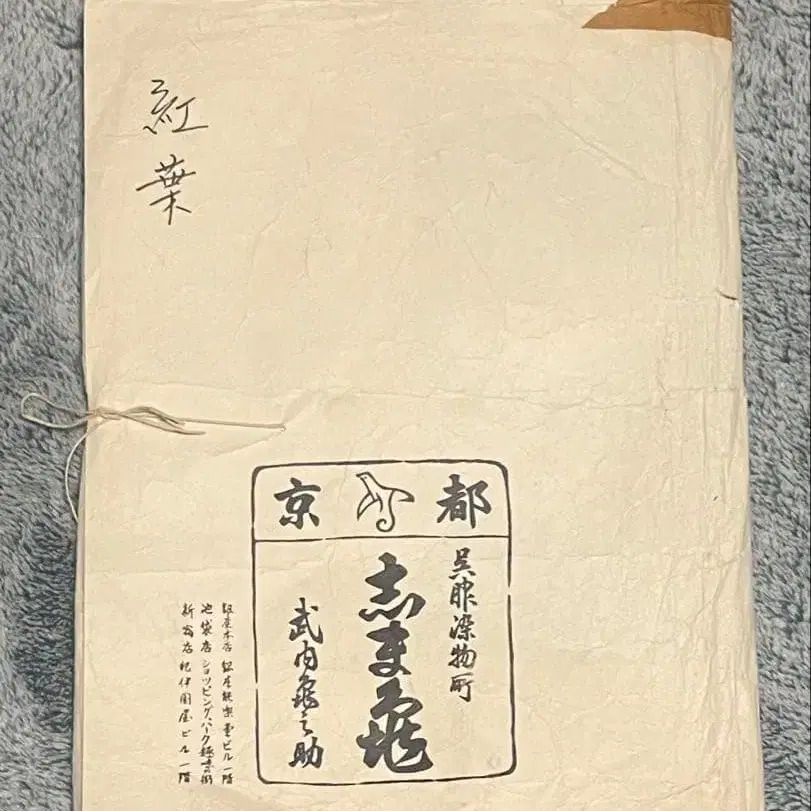 紅葉
京都
呉服染物所
志ま亀
武内亀之助
銀座本店 銀座能楽堂ビル一階
池袋店 ショッピングパーク
新宿店 紀伊國屋ビル一階